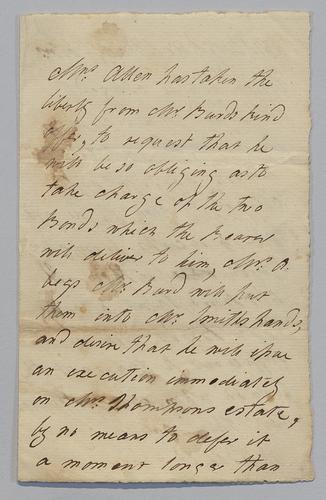 Mrs. Allen has taken the
liberty from Mr. Burds kind
offer, to request that he
will be so obliging as to
take charge of the two
Bonds which the Bearer
will deliver to him, Mrs. A.
begs Mr. Burd will put
them into Mr. Smiths hands,
and desire that he will issue
an execution immediately
on Mr. Thompsons estate,
by no means to defer it
a moment longer than